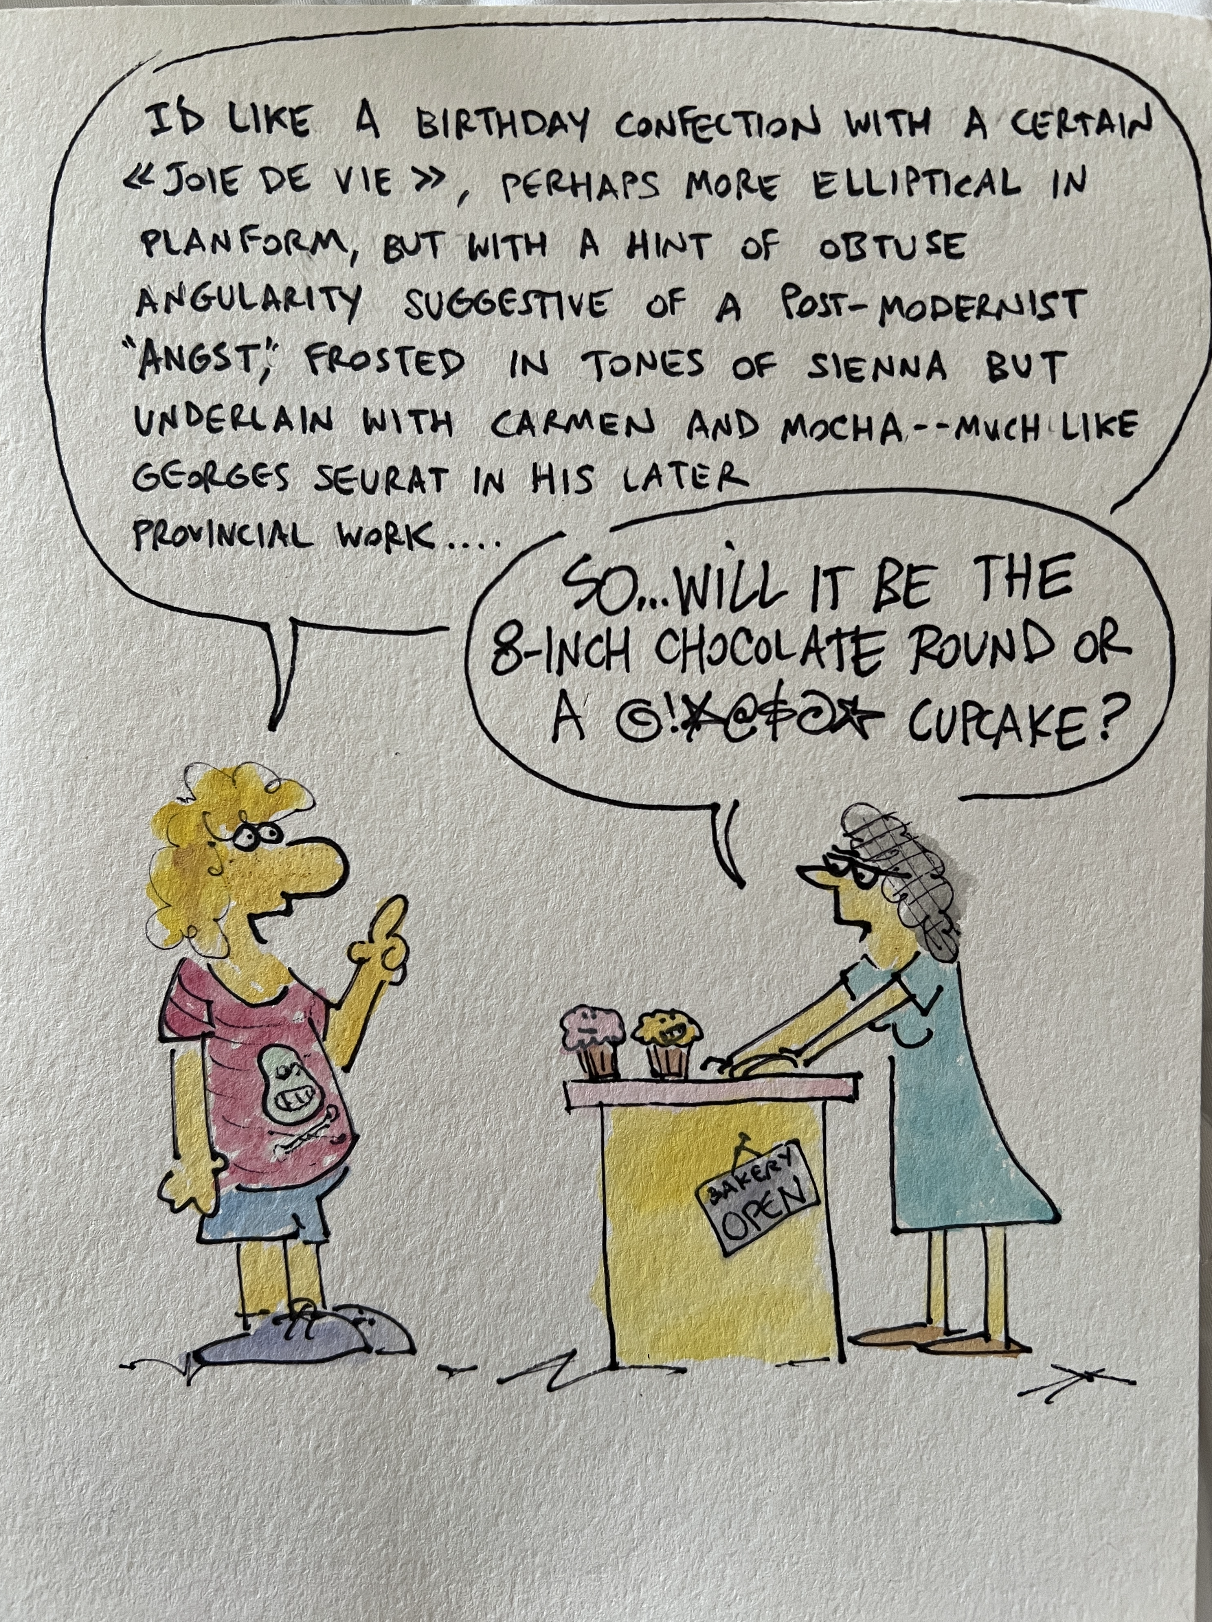 I'D LIKE A BIRTHDAY CONFECTION WITH A CERTAIN
«JOIE DE VIE», PERHAPS MORE ELLIPTICAL IN
PLANFORM, BUT WITH A HINT OF OBTUSE
ANGULARITY SUGGESTIVE OF A POST-MODERNIST
"ANGST," FROSTED IN TONES OF SIENNA BUT
UNDERLAIN WITH CARMEN AND MOCHA--MUCH LIKE
GEORGES SEURAT IN HIS LATER
PROVINCIAL WORK....
SO...WILL IT BE THE
8-INCH CHOCOLATE ROUND OR
A @!*@$@* CUPCAKE?
BAKERY
OPEN